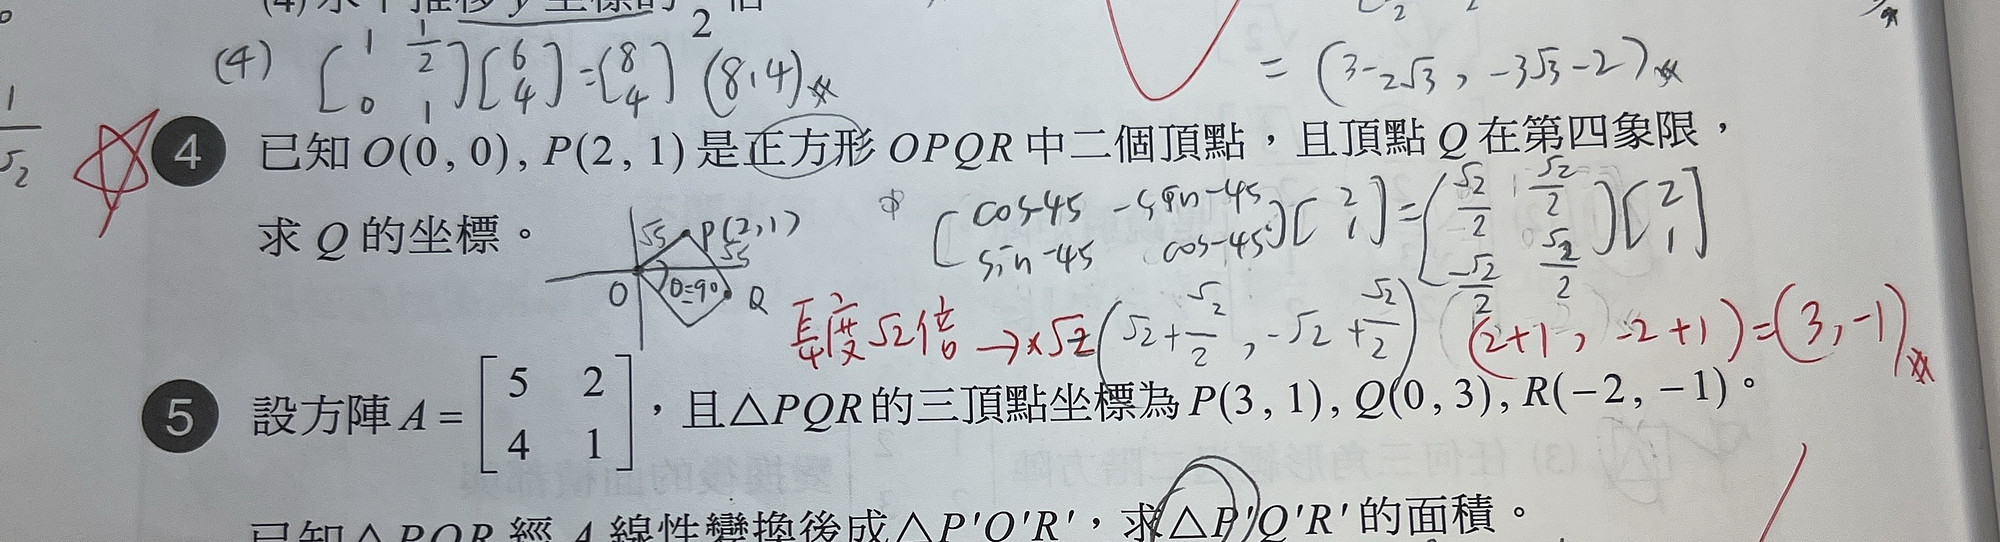 (4) 水平推移 y 坐標的 2 倍
(4) [1 1/2 0 1][6 4]=[8 4] (8,4)※
= (3-2√3, -3√3-2)※
1/√2
4 已知 O(0,0), P(2,1) 是正方形 OPQR 中二個頂點，且頂點 Q 在第四象限，
求 Q 的坐標。
√5 P(2,1) √5 O θ=90 Q
[cos-45 -sin-45 sin-45 cos-45][2 1]=[√2/2 √2/2 -√2/2 √2/2][2 1]
長度√2倍→×√2 (√2+√2/2, -√2+√2/2) (2+1, -2+1)=(3,-1)※
5 設方陣 A=[5 2 4 1]，且△PQR的三頂點坐標為 P(3,1), Q(0,3), R(-2,-1)。
已知△PQR 經 A 線性變換後成△P'Q'R'，求△P'Q'R' 的面積。